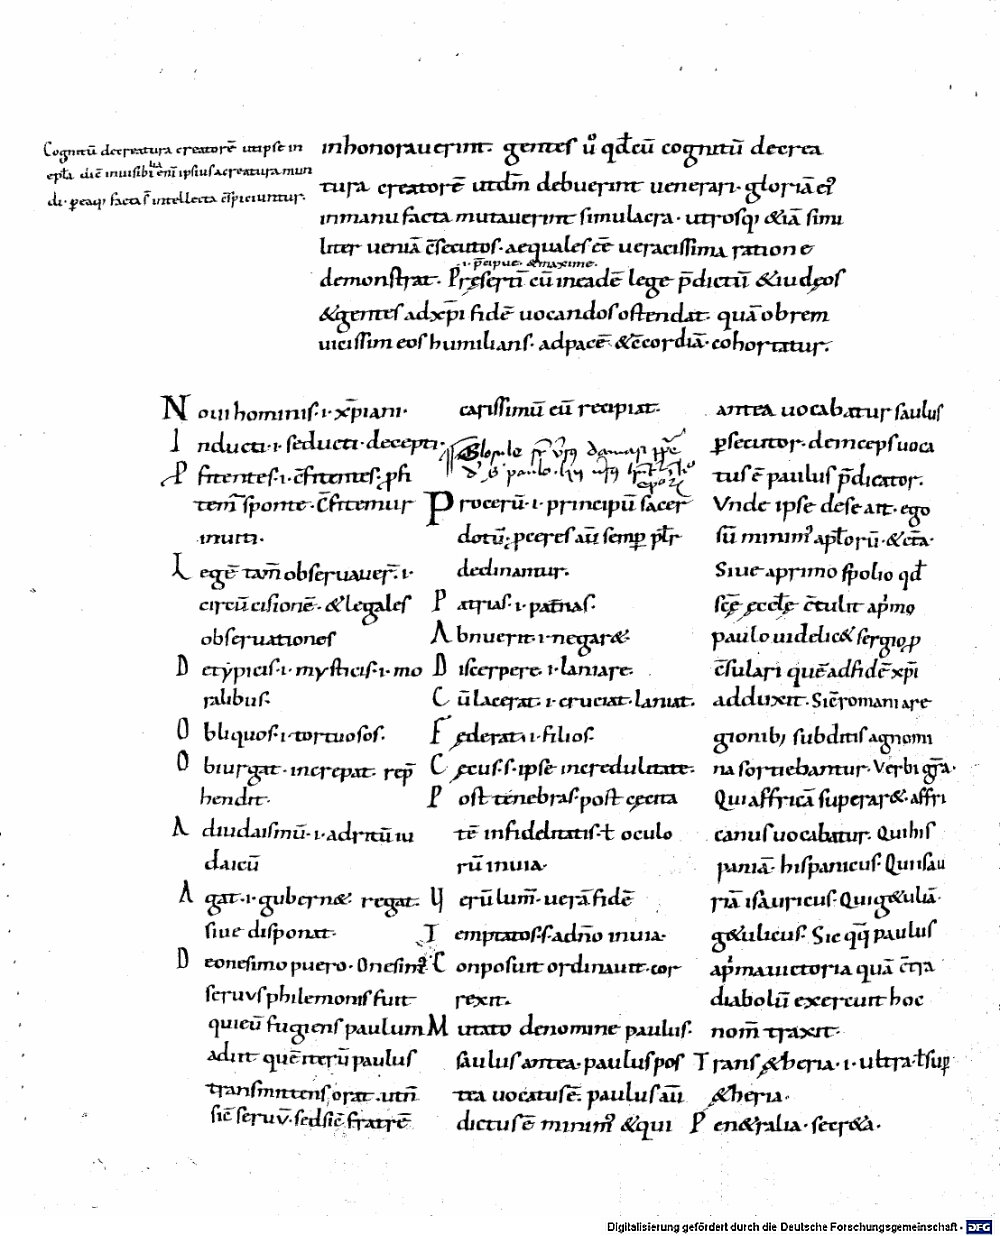 Cognitū decreatura creatorē utipse in
ap̄la dic̄ inuisibilia eni᷒ ipsius acreatura mun
di· p̱eaq; facta s̄ intellecta c̄spiciuntur·
inhonorauerint· gentes ů qđcū cognitū decrea
tura creatorē utdm̄ debuerint uenerari· gloriā ei᷒
inmanu facta mutauerint simulacra· utrosq; &iā simi
liter ueniā c̄secutos· aequales eē ueracissima ratione
·i· p̄cipue· &maxime·
demonstrat· Presertī cū ineadē lege p̄dictū &iudęos
&gentes adxp̄i fidē uocandos ostendat· quā obrem
uicissim eos humilians· adpacē &c̄cordiā· cohortatur·
Noui hominis·i·xp̄iani·
Inducti·i·seducti·decepti·
Pfitentes·i·c̄fitentes· pfi
tem̄ sponte· c̄fitemur
inuiti·
Legē tam̄ obseruauer̄·i·
circūcisionē·&legales
obseruationes
Detypicis·i·mysticis·i·mo
ralibus·
Obliquos·i·tortuosos·
Obiurgat·increpat·rep̄
hendit·
Aduidaismū·i·adritū iu
daicū
Agat·i·gubern&·regat·
siue disponat·
Deonesimo puero·Onesim᷒
seruus philemonis fuit
quieū fugiens paulum
adiit quē iterū paulus
transmittens orat·utn̄
sic̄ seruū·sedsic̄ fratrē
carissimū eū recipiat·
Procerū·i·principū sacer
dotū· pceres aū semp̱ plr̄
declinantur·
Patrias·i·pat̄nas·
Abnuerit·i·negar&
Discerpere·i·laniare·
Cū lacerat·i·cruciat·laniat·
Fęderati·i·filios·
Cęcus·s·ipse incredulitate·
Post tenebras·post cęcita
tē infidelitatis·ł oculo
rū inuia·
Uerū lum̄·uerā fidē
Temptatos·s·adn̄o inuia·
Conposuit ordinauit·cor
rexit·
Mutato denomine paulus·
saulus antea·paulus pos
tea uocatus ē·paulus aū
dictus ē minim᷒ &qui
antea uocabatur saulus
p̱secutor·deinceps uoca
tus ē paulus p̄dicator·
Vnde ipse dese ait·ego
sū minim᷒ apłorū·&cт̄a·
Siue aprimo spolio qđ
scę̄ ęccłę c̄tulit aprimo
paulo uidelic& sergio p̱
c̄sulari quē adfidē xp̄i
adduxit·Sic̄ romani are
gionib; subditis agnomi
na sortiebantur·Verbi gr̄a·
Qui affricā superar&·affri
canus uocabatur·Quihis
paniā·hispanicus·Quiisau
riā isauricus·Quig&uliā·
g&ulicus·Sic qq̄ paulus
aprima uictoria quā c̄tra
diabolū exercuit hoc
nom̄ traxit·
Trans &heria·i·ultra·ł sup̱
&heria·
Pen&ralia·secr&a·
Digitalisierung gefördert durch die Deutsche Forschungsgemeinschaft · DFG